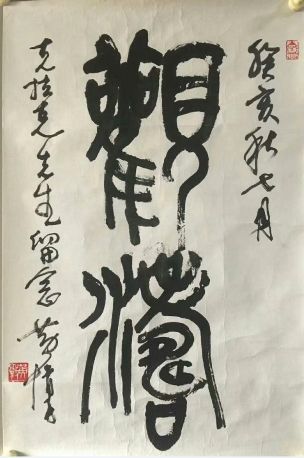 癸亥秋七月
觀濤
克拉克先生留念